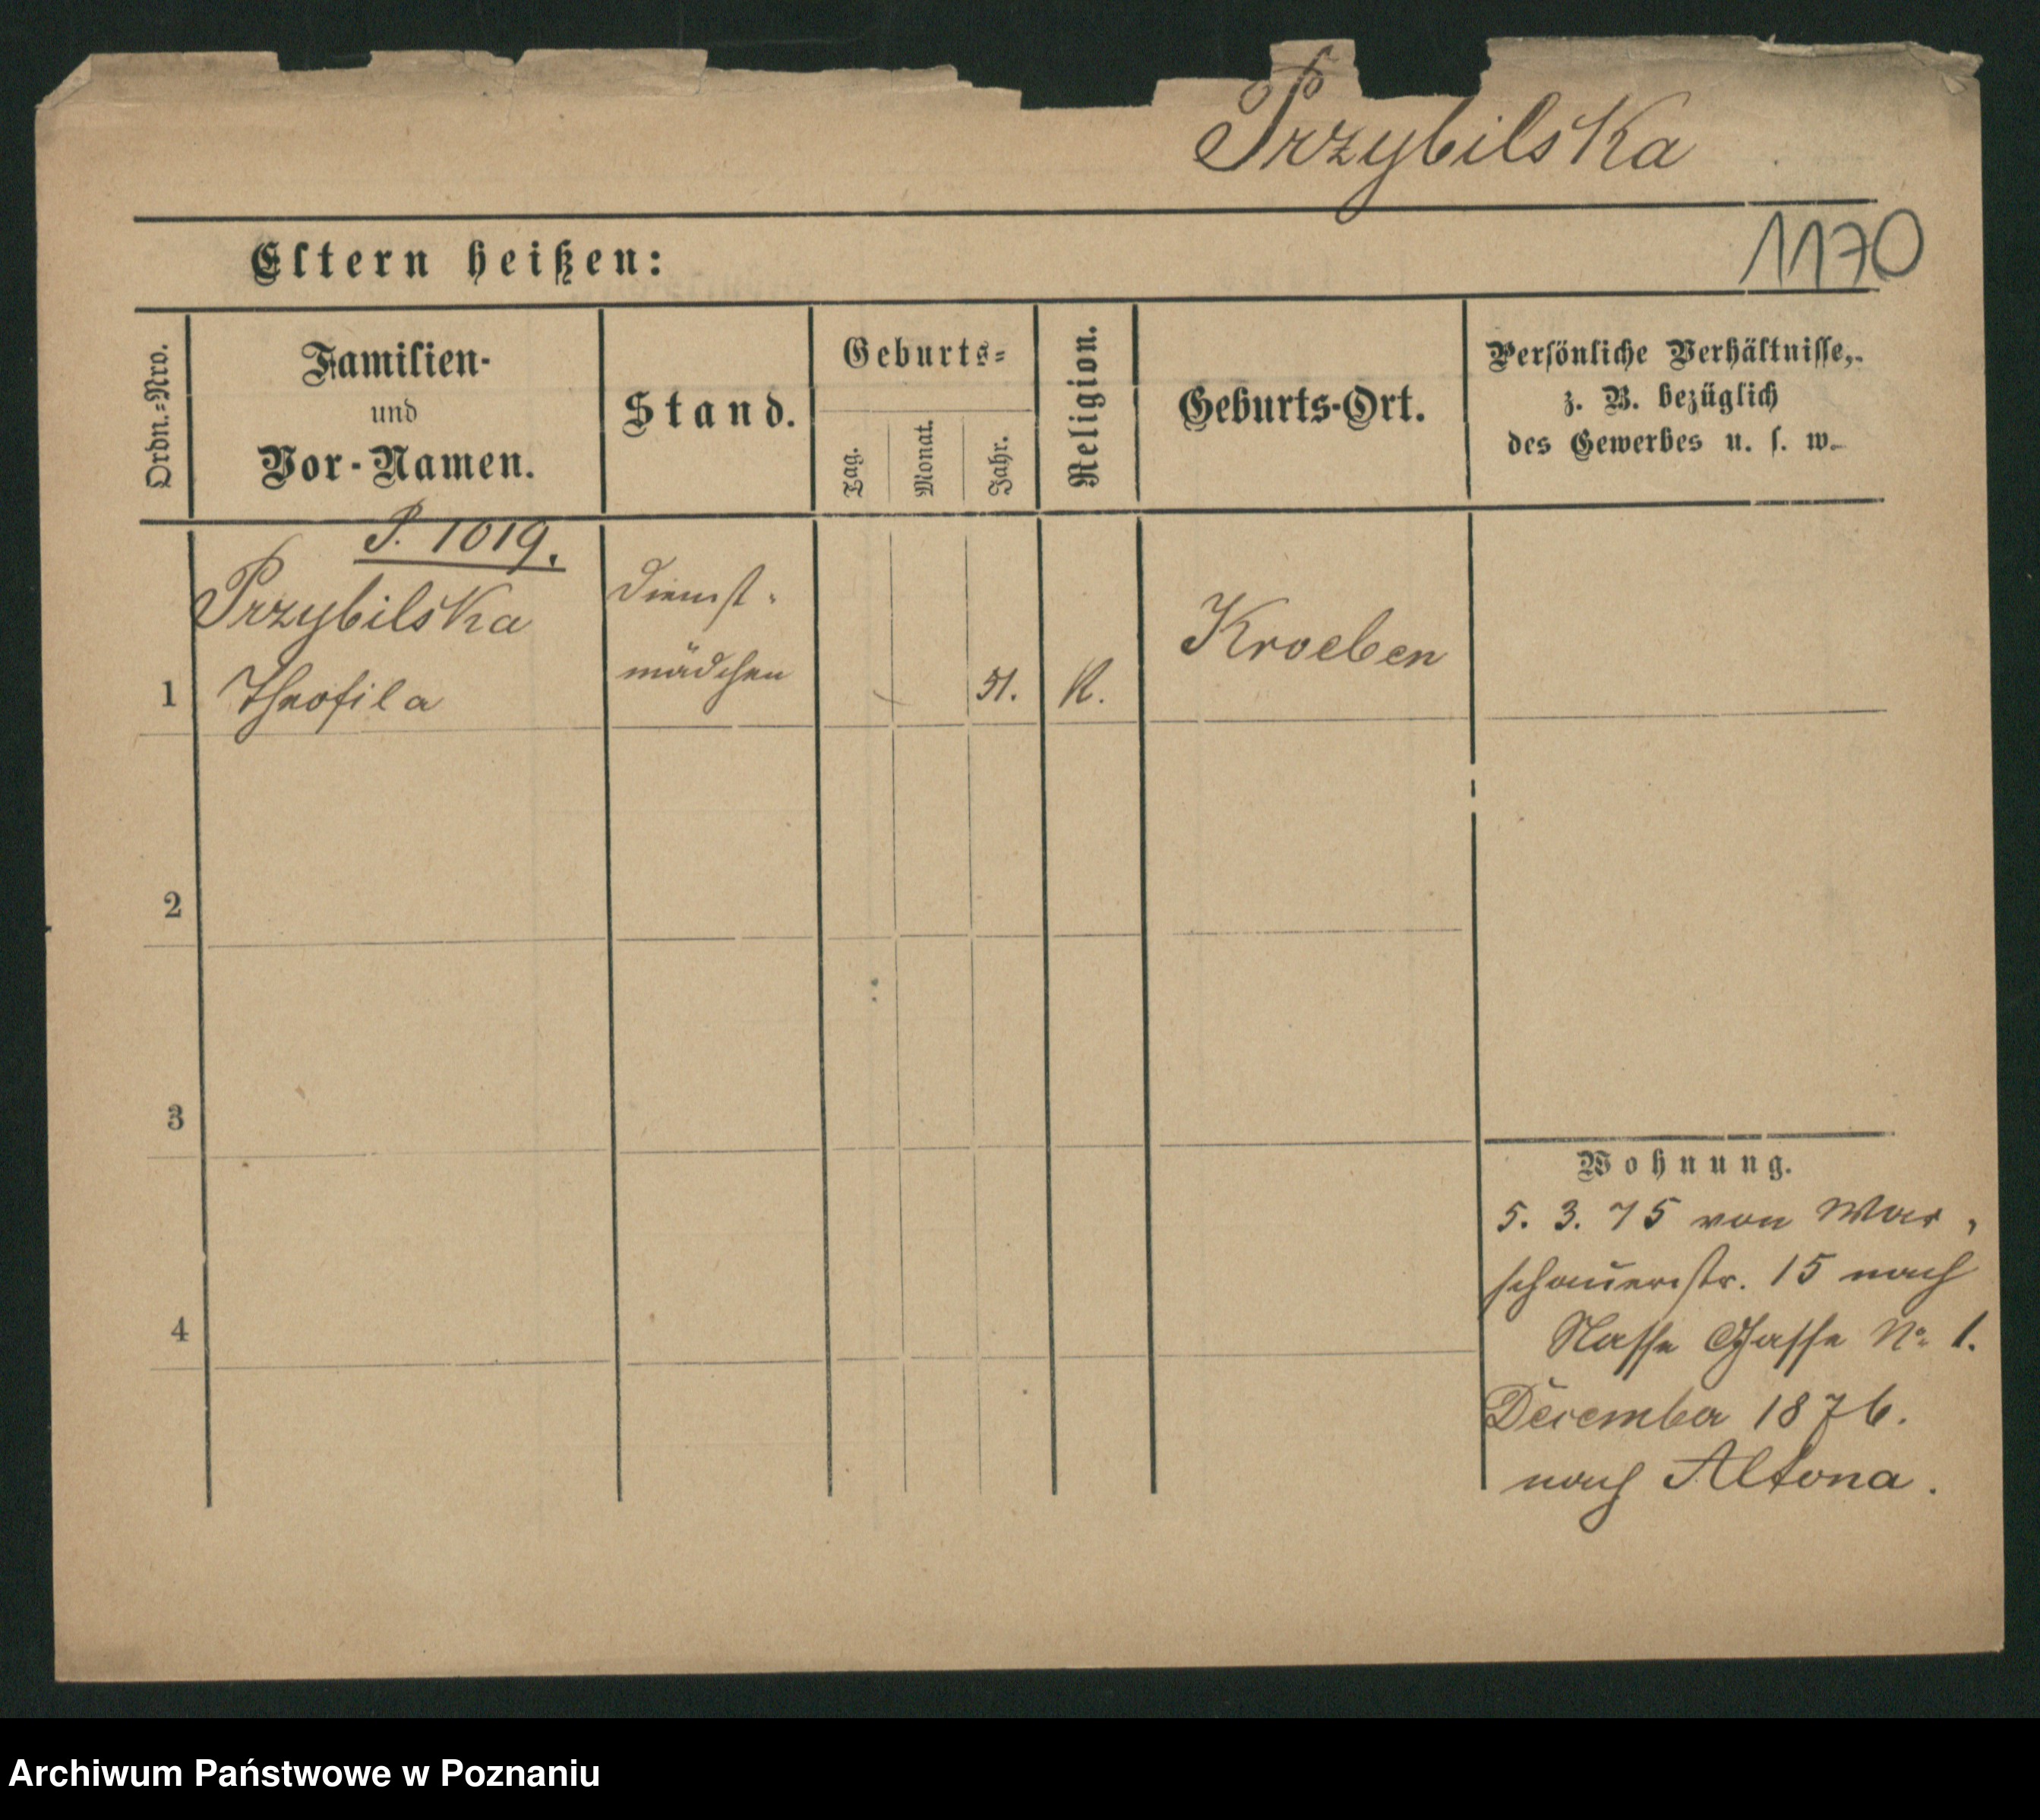 Przybilska
Eltern heißen:
1170
Ordn.=Nro.
Familien-
und
Vor-Namen.
Stand.
Geburts=
Tag.
Monat.
Jahr.
Religion.
Geburts-Ort.
Persönliche Verhältnisse,
z. B. bezüglich
des Gewerbes u. s. w.
P. 1019.
Przybilska
Theofila
Dienst-
mädchen
51.
K.
Kroeben
1
2
3
4
Wohnung.
5. 3. 75 von War-
schauerstr. 15 nach
Nasse Gasse No 1.
December 1876.
nach Altona.
Archiwum Państwowe w Poznaniu